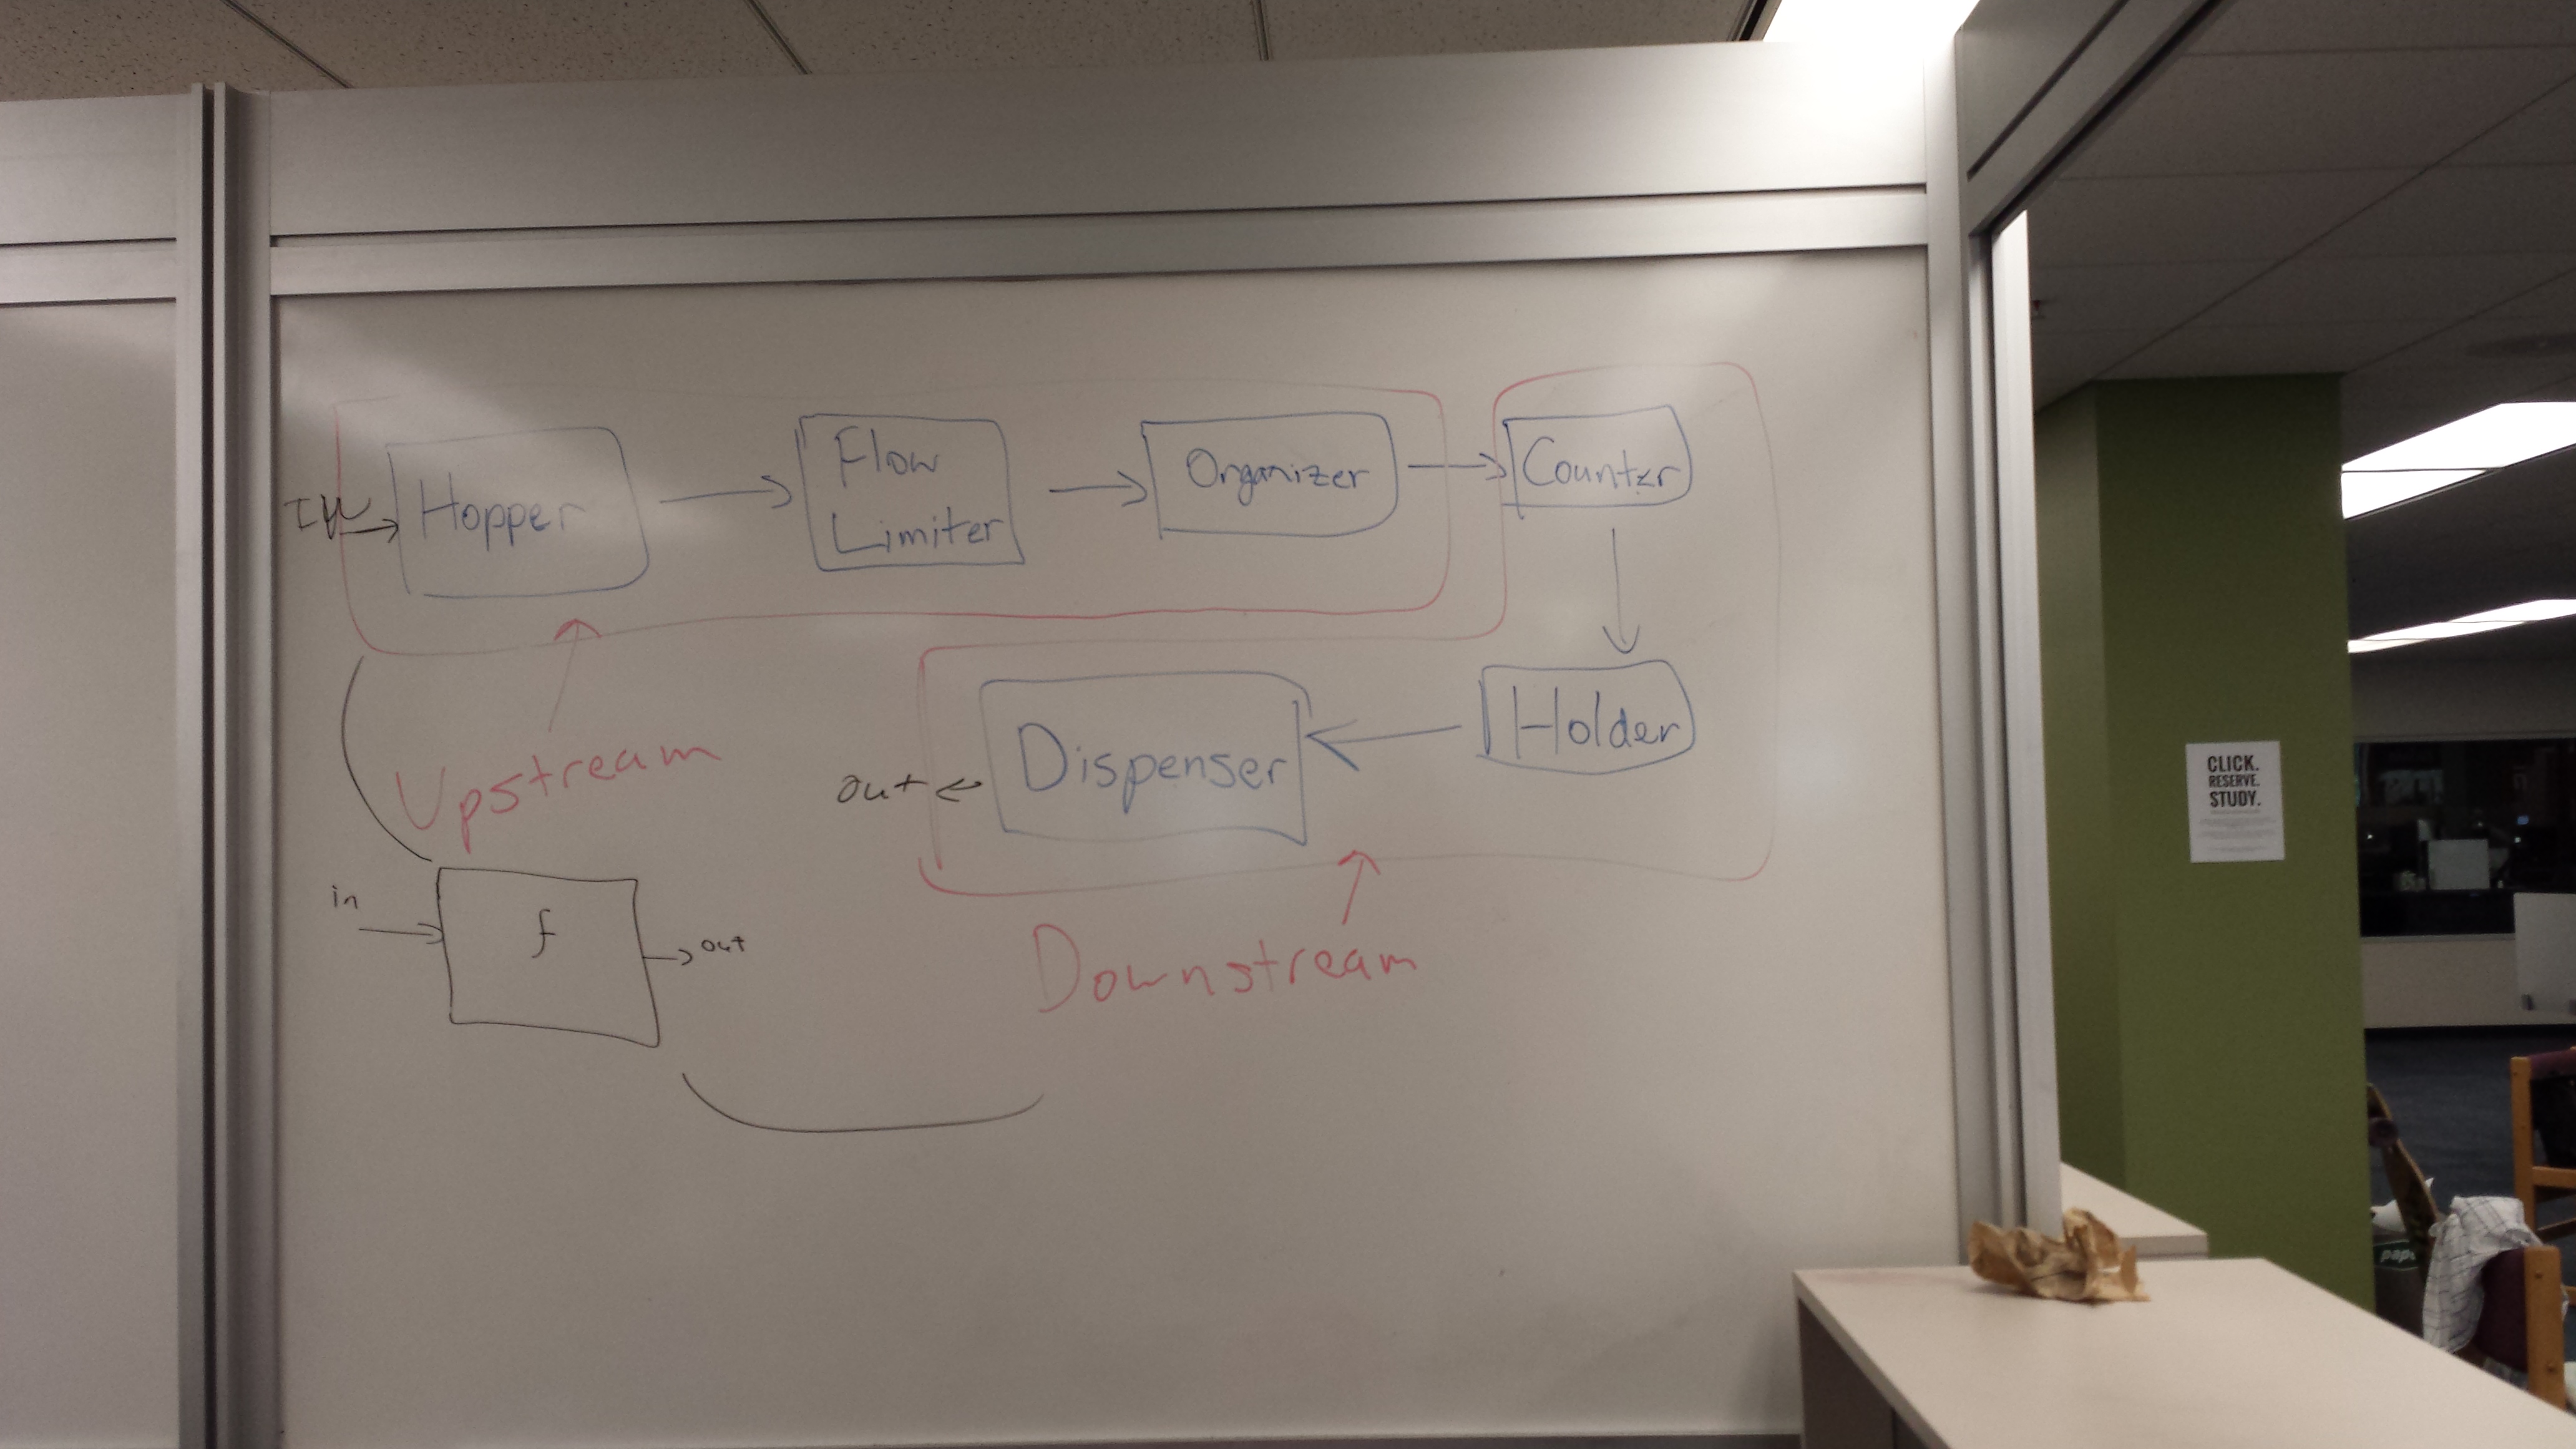 IN
Hopper
Flow
Limiter
Organizer
Counter
Holder
Dispenser
out
Upstream
Downstream
in
f
out
CLICK.
RESERVE.
STUDY.